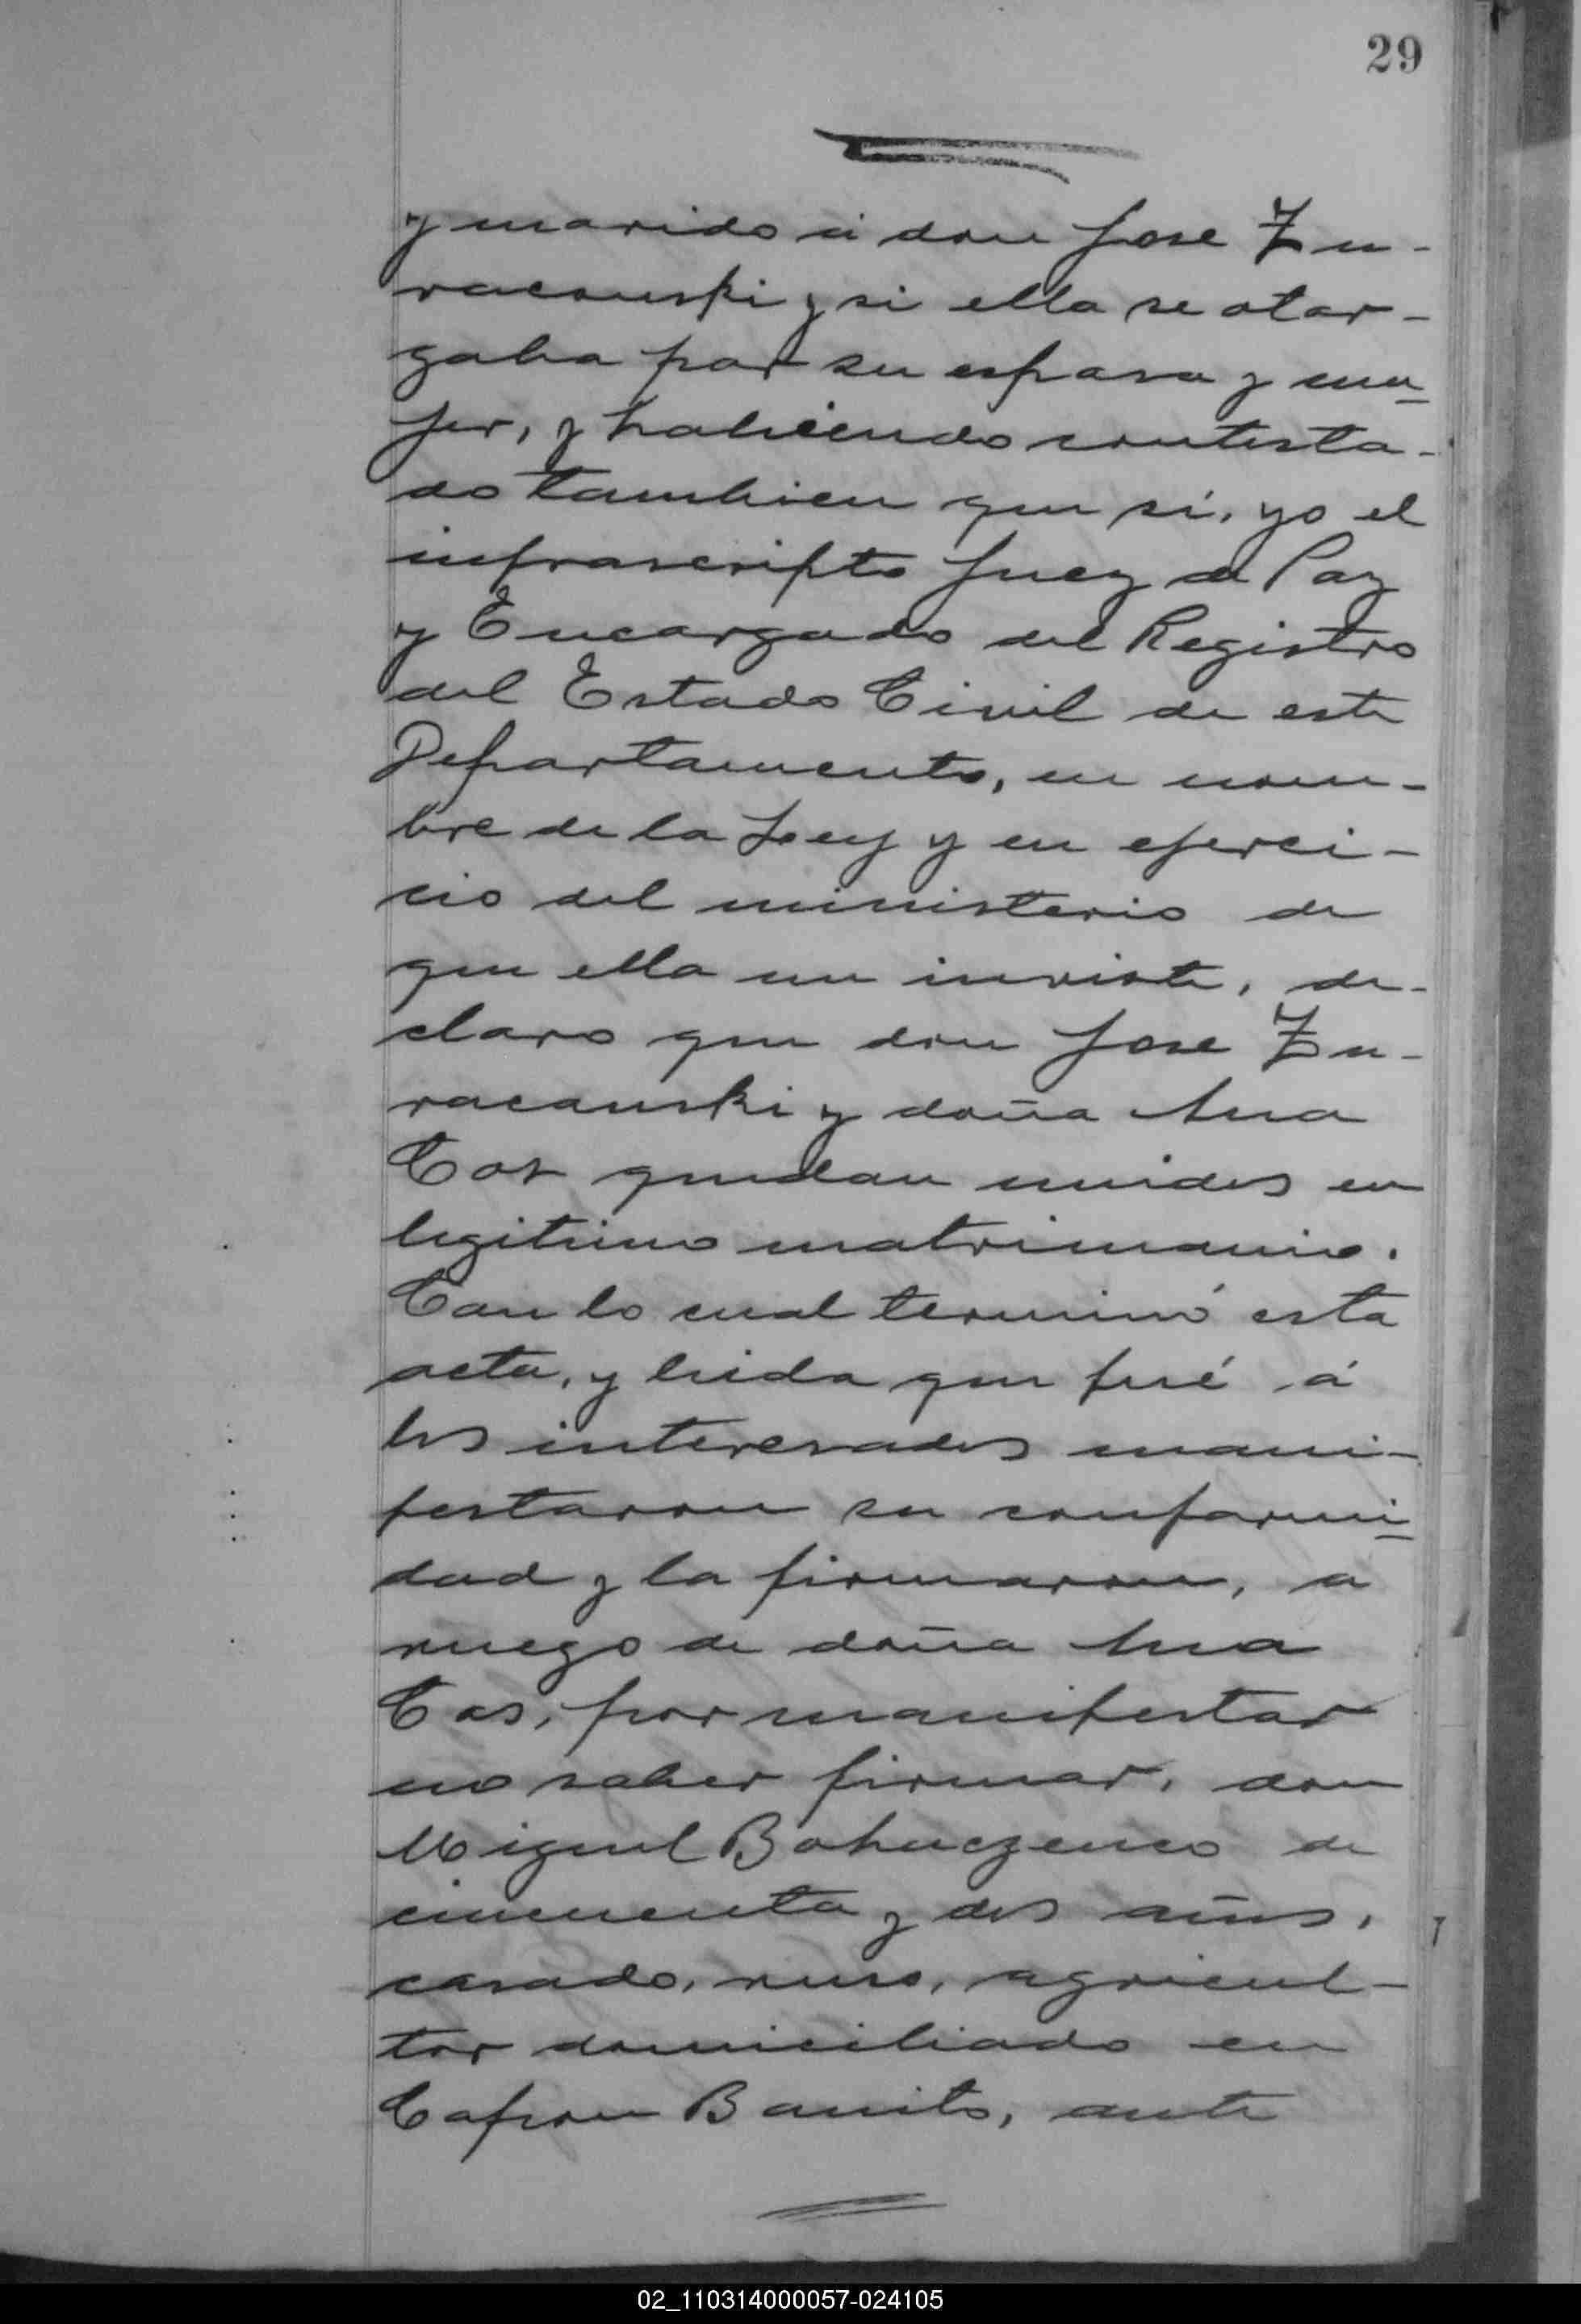 29
y marido á don Jose Zu-
raconski y si ella se otor-
gaba por su esposo y mu-
jer, y habiendo contesta-
do tambien que sí, yo el
infrascripto Juez de Paz
y Encargado del Registro
del Estado Civil de este
Departamento, en nom-
bre de la Ley y en ejerci-
cio del ministerio de
que ella me inviste, de-
claro que don Jose Zu-
raconski y doña Ana
Cos quedan unidos en
legitimo matrimonio.
Con lo cual terminó esta
acta, y leida que fué á
los interesados mani-
festaron su conformi-
dad y la firmaron, a
ruego de doña Ana
Cos, por manifestar
no saber firmar, don
Miguel Bohuczenco de
cincuenta y dos años,
casado, ruso, agricul-
tor domiciliado en
Capon Bonito, ante
02_110314000057-024105